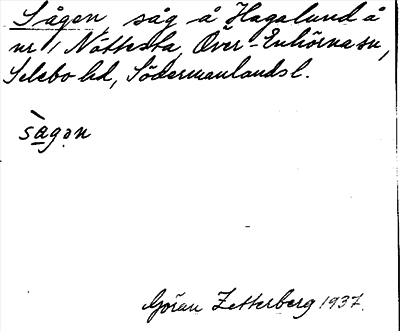 Sågen såg å Hagalund å
nr 1 Nöttesta, Över-Enhörna sn,
Selebo hd, Södermanlands l.
sàgən
Göran Zetterberg 1937.